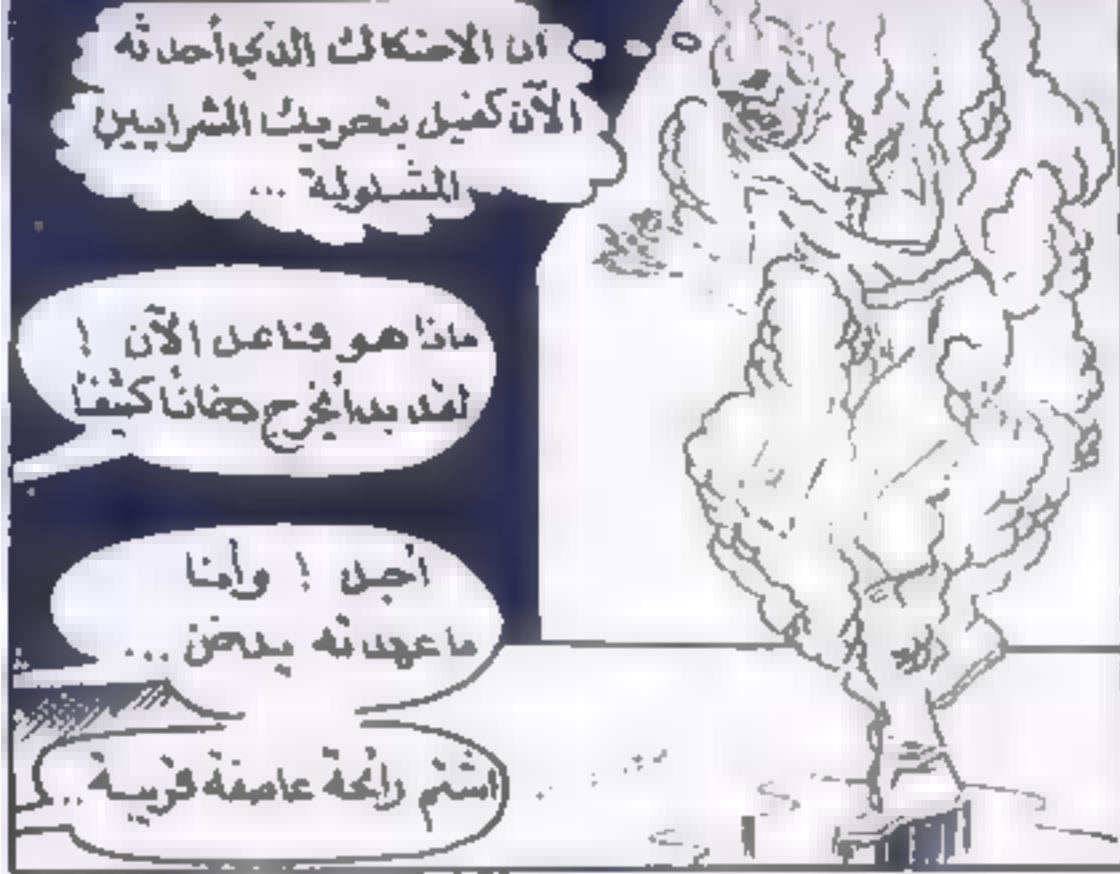 ان الاحتكاك الذي أحدثه
الآن كفيل بتحريك الشرايين
المشلولة ...
ماذا هو فاعل الآن !
لقد بدأ يخرج دخانًا كثيفًا
أجل ! وأنا
ما عهدته يدخن ...
اشتم رائحة عاصفة قريبة ..